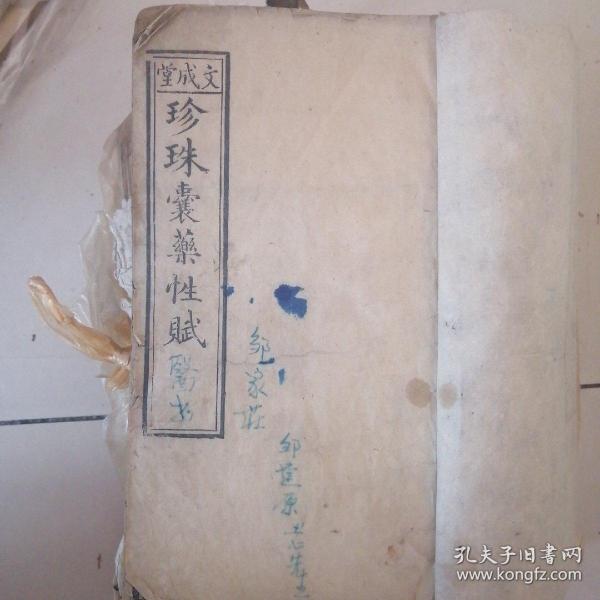 文成堂
珍珠囊藥性賦
醫書
邹家莊
邹 原 先生
孔夫子旧书网
www.kongfz.com